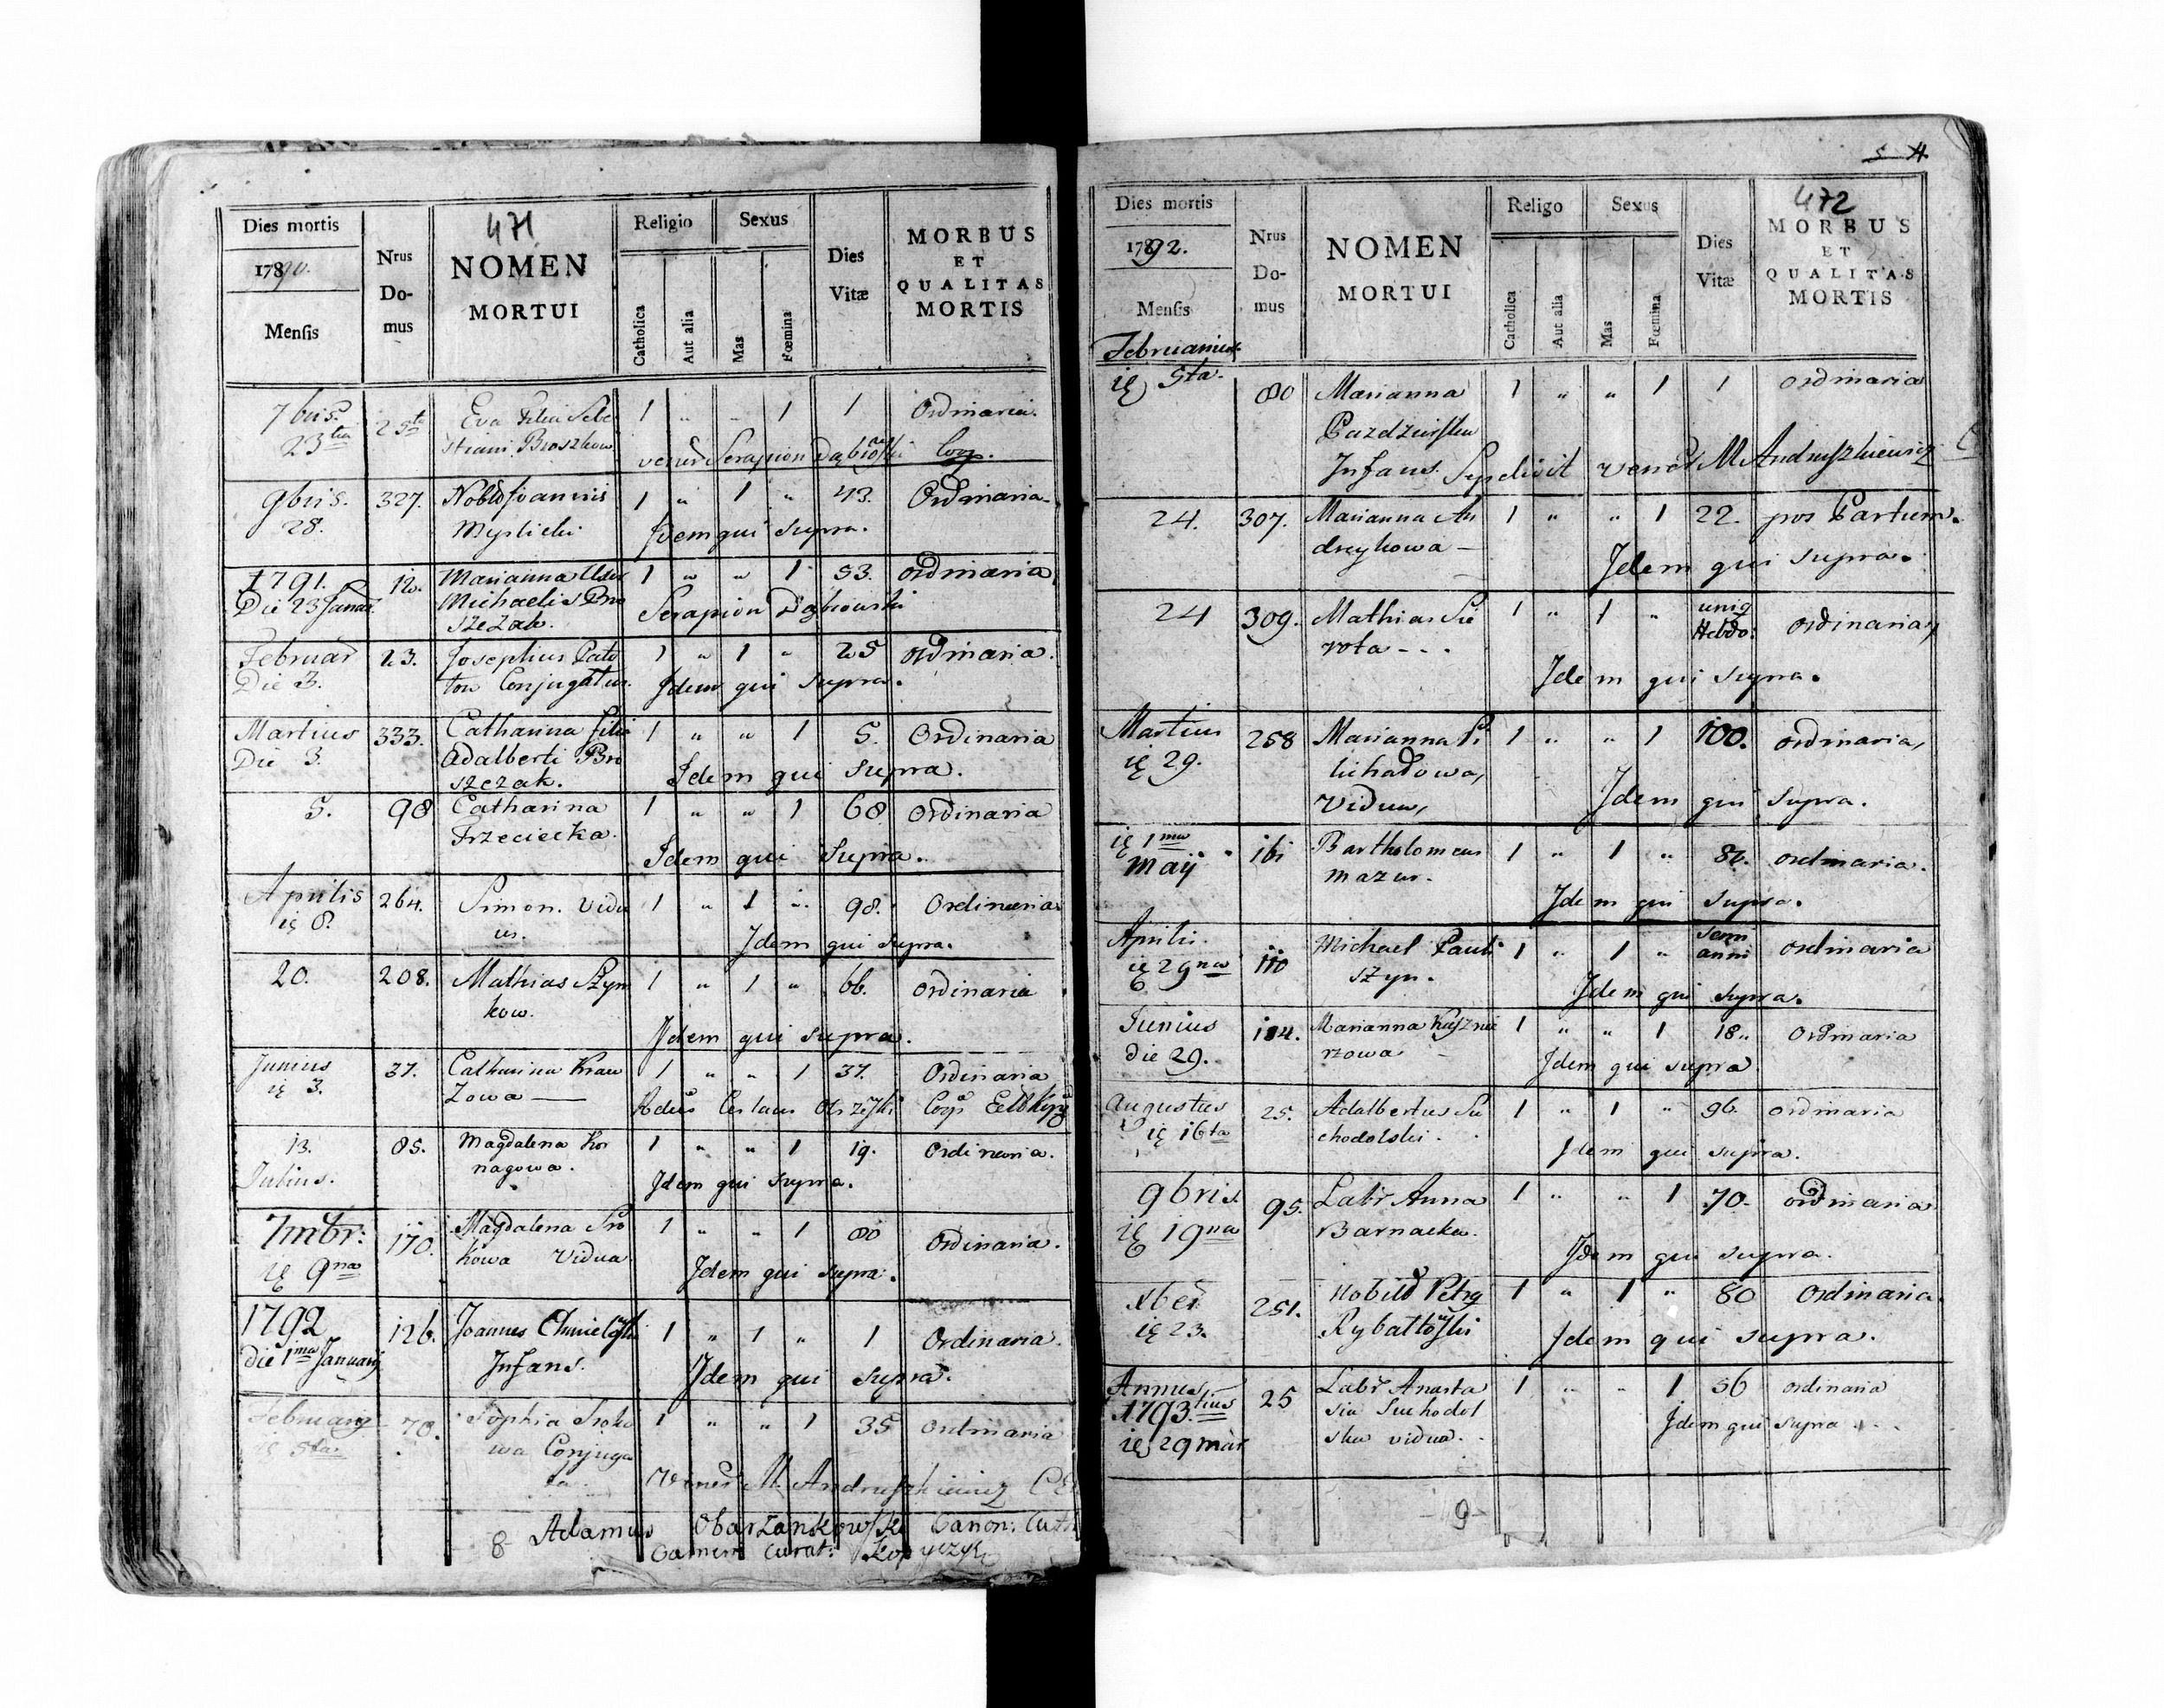 471
Dies mortis
1790.
Mensis
Nrus Do-mus
NOMEN
MORTUI
Religio
Catholica
Aut alia
Sexus
Mas
Fœmina
Dies
Vitæ
MORBUS
ET
QUALITAS
MORTIS
7bris. 25ta Eva Filia Seba 1 " " 1 1 Ordinaria.
23tia stiani Broszkow
vener Serapion Dąbrowski Coop.
9bris. 327. Nobld Joannis 1 " 1 " 43. Ordinaria
28. Myslicki Idem qui supra.
1791. 12. Marianna Uxor 1 " " 1 53. ordinaria
Die 23 Januar Michaelis Bro Serapion Dąbrowski
szczak.
Februar 23. Josephus Pato 1 " 1 " 25 ordinaria.
Die 3. Conjugatus. Idem qui supra.
Martius 333. Catharina filia 1 " " 1 5. Ordinaria
Die 3. Adalberti Bro Idem qui supra.
szczak.
5. 98 Catharina 1 " " 1 68 Ordinaria
Trzeciecka. Idem qui supra.
Aprilis 264. Simon. Vidu 1 " 1 " 98. Ordinaria
ię 8. us. Idem qui supra.
20. 208. Mathias Szym 1 " 1 " 66. ordinaria
kow. Idem qui supra.
Junius 37. Catharina Kraw 1 " " 1 37. Ordinaria
ię 3. zowa Ceslaus
13. 85. Magdalena Kor 1 " " 1 19. Ordinaria.
Julius. nagowa. Idem qui supra.
7mbr: 170. Magdalena Sro 1 " " 1 80 Ordinaria.
ię 9na kowa Vidua Idem qui supra.
1792 126. Joannes Chmielewski 1 " 1 " 1 Ordinaria.
die 1ma Januarij Infans. Idem qui supra.
Februarij 70. Sophia Sroko 1 " " 1 35 ordinaria
ię 5ta wa Conjuga
ta. Vener M. Andruszkiewicz
8 Adamus Obarzankowski Canon:
Curat:
5 4.
472
Dies mortis
1792.
Mensis
Nrus Do-mus
NOMEN
MORTUI
Religo
Catholica
Aut alia
Sexus
Mas
Fœmina
Dies
Vitæ
MORBUS
ET
QUALITAS
MORTIS
Februarius
ię 5ta. 80 Marianna 1 " " 1 1 ordinaria
Pazdzierska
Infans. Sepelivit Vener M Andruszkiewicz
24. 307. Marianna An 1 " " 1 22. pos Partum.
dreykowa Idem qui supra.
24 309. Mathias Sie 1 " 1 " uniq Hebdo: ordinaria,
rota - - . Idem qui supra.
Martius 258 Marianna Pi 1 " " 1 100. ordinaria,
ię 29. lichadowa,
Vidua, Idem qui supra.
ię 1ma 161 Bartholomeus 1 " 1 " 80. ordinaria.
Maij mazur. Idem qui supra.
Aprilis. 110 Michael Pauli 1 " 1 " Semi anni ordinaria
ię 29na szyn. Idem qui supra.
Junius 184. Marianna Kuznie 1 " " 1 18. Ordinaria
die 29. rzowa Idem qui supra
Augustus 25. Adalbertus Su 1 " 1 " 96. ordinaria
ię 16ta chodolski. Idem qui supra.
9bris. 95. Labr Anna 1 " " 1 70. ordinaria
ię 19na Barnacka. Idem qui supra.
251. Nobild Petrq 1 " 1 " 80 Ordinaria.
ię 23. Rybattowski Idem qui supra.
Annus 25 Labr Anasta 1 " " 1 56 ordinaria
1793.tius sia Suchodol Idem qui supra
ię 29 mar ska vidua.
9